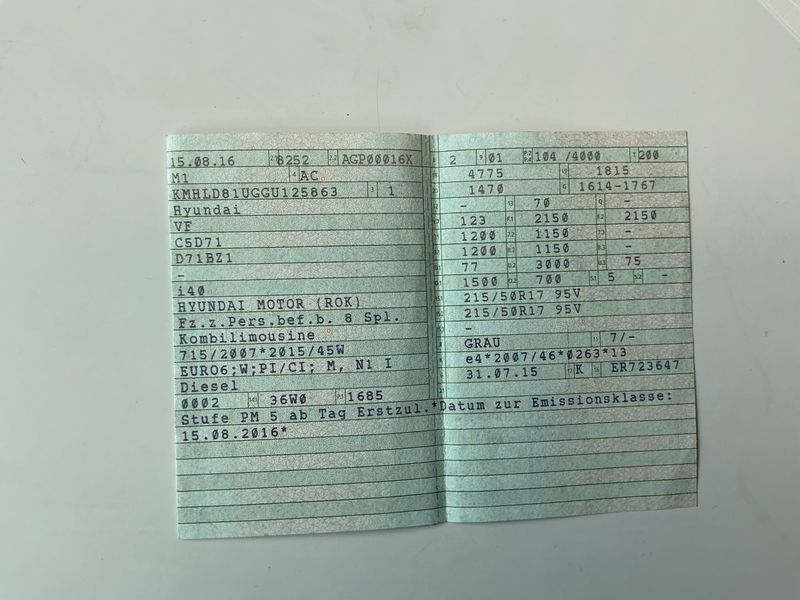 15.08.16 8252 AGP00016X
M1 AC
KMHLD81UGGU125863 1
Hyundai
VF
C5D71
D71BZ1
-
i40
HYUNDAI MOTOR (ROK)
Fz.z.Pers.bef.b. 8 Spl.
Kombilimousine
715/2007*2015/45W
EURO6;W;PI/CI; M, N1 I
Diesel
0002 36W0 1685
Stufe PM 5 ab Tag Erstzul.*Datum zur Emissionsklasse:
15.08.2016*
2 01 104 /4000 200
4775 1815
1470 1614-1767
- 70 -
123 2150 2150
1200 1150 -
1200 1150 -
77 3000 75
1500 700 5 -
215/50R17 95V
215/50R17 95V
-
GRAU 7/-
e4*2007/46*0263*13
31.07.15 K ER723647